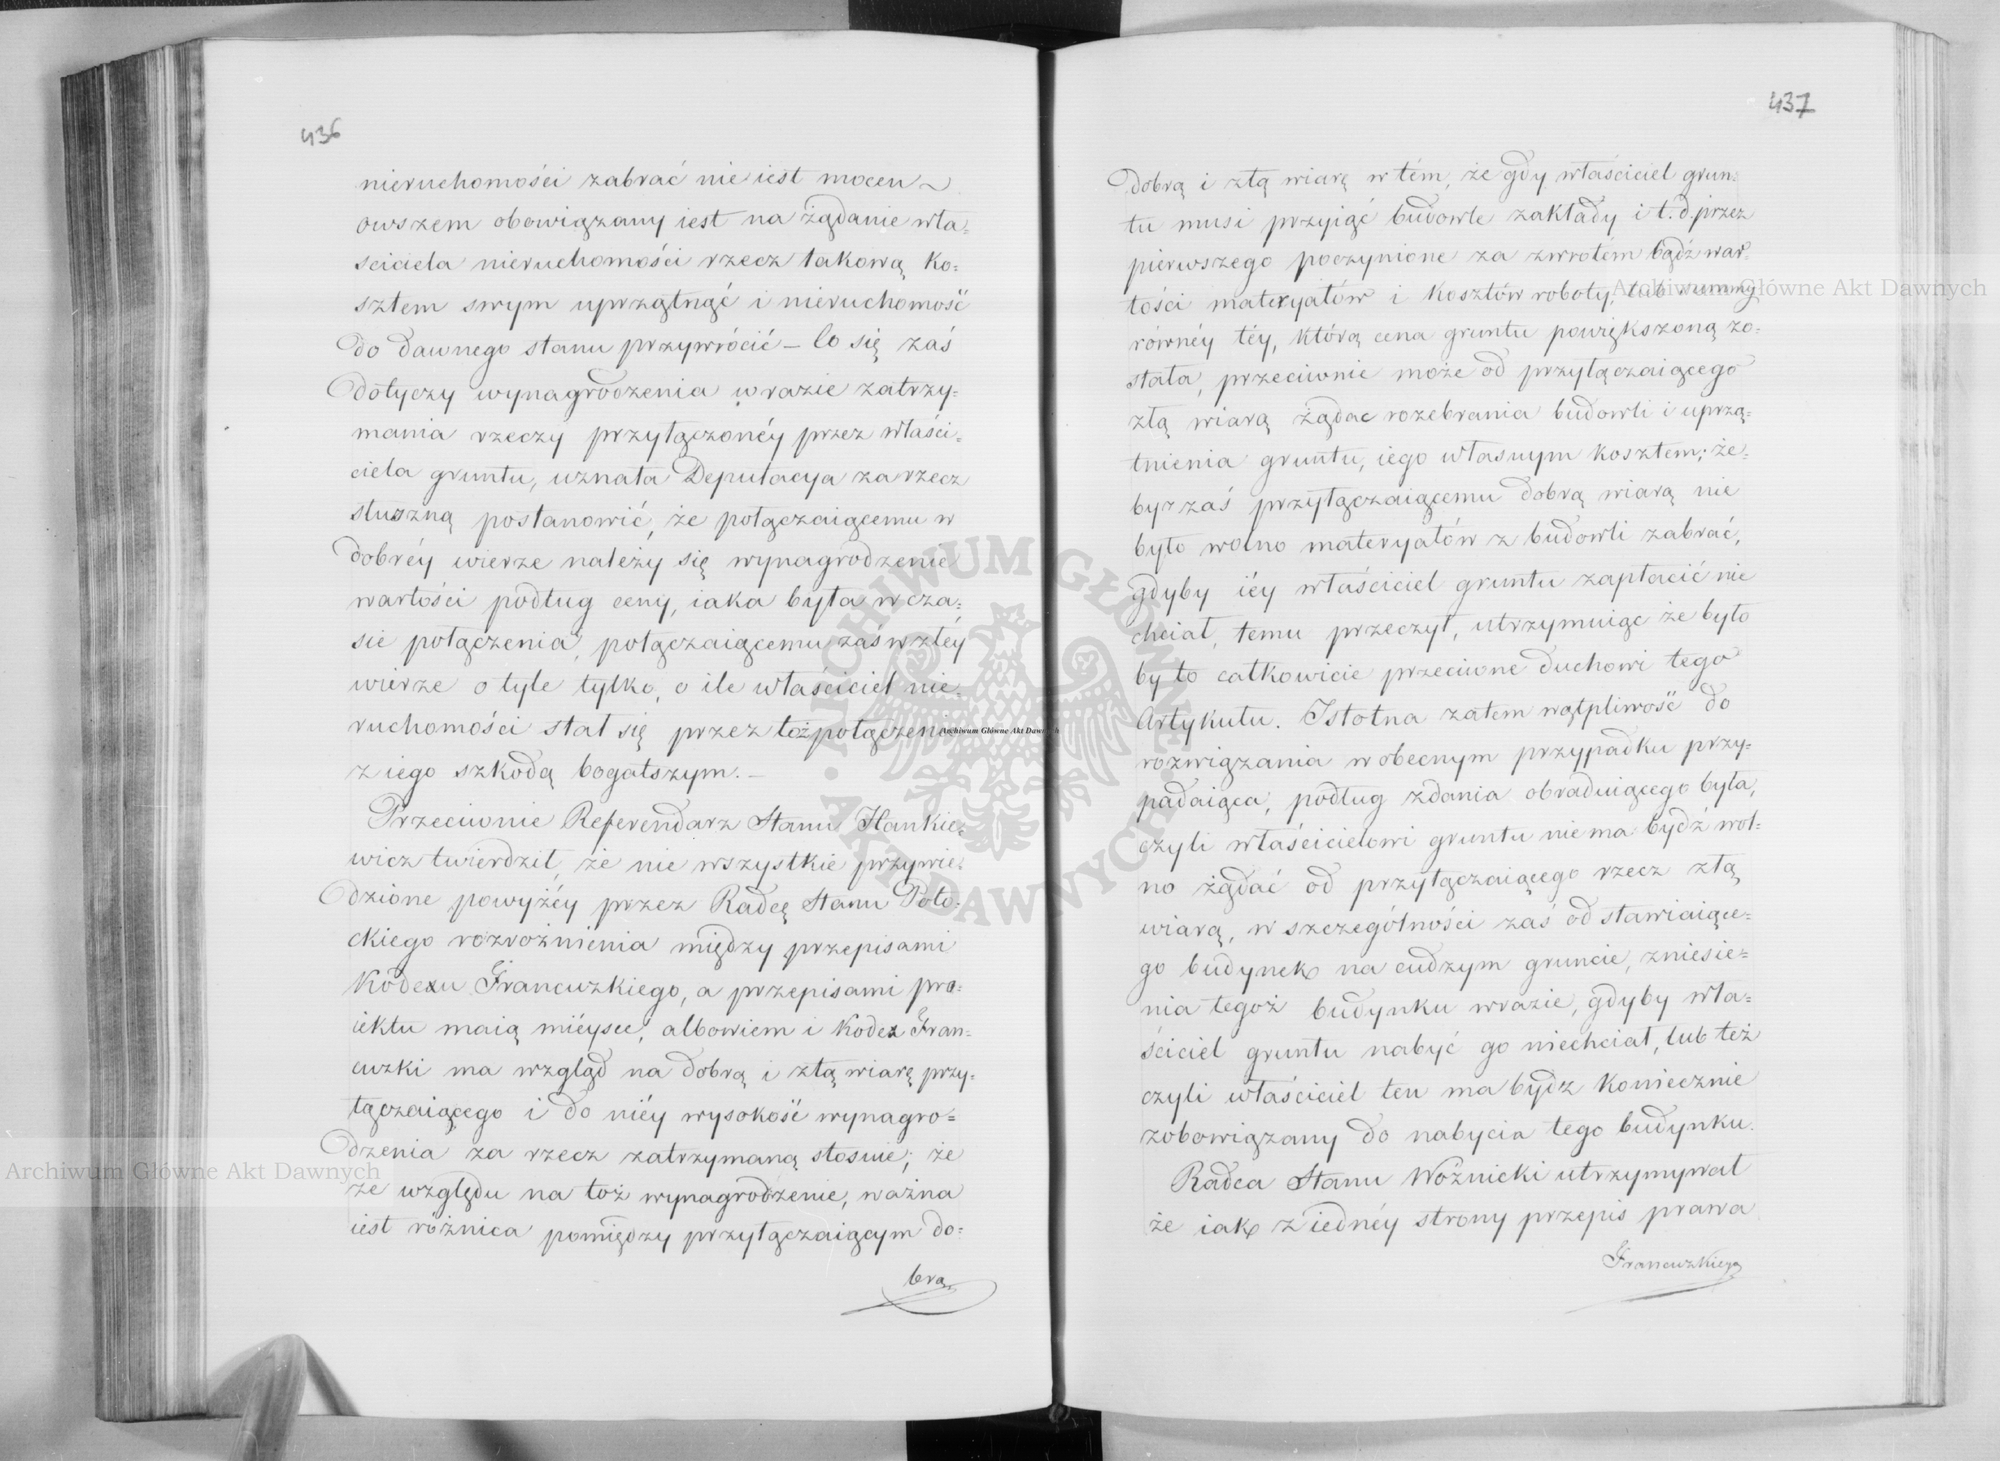 436
nieruchomości zabrać nie iest mocen ~
owszem obowiązany iest na żądanie wła=
sciciela nieruchomości rzecz takową ko=
sztem swym uprzątnąć i nieruchomość
do dawnego stanu przywrócić — Co się zaś
dotyczy wynagrodzenia w razie zatrzy=
mania rzeczy przyłączonéy przez właści=
ciela gruntu, uznała Deputacya za rzecz
słuszną postanowić, że połączaiącemu w
dobréy wierze należy się wynagrodzenie
wartości podług ceny, iaka była w cza=
sie połączenia, połączaiącemu zaś w złéy
wierze o tyle tylko, o ile właściciel nie=
ruchomości stał się przez toż połączenie
z iego szkodą bogatszym. —
Przeciwnie Referendarz Stanu Hankie=
wicz twierdził, że nie wszystkie przywie=
dzione powyżéy przez Radcę Stanu Poto=
ckiego rozrożnienia między przepisami
Kodexu Francuzkiego, a przepisami pro=
iektu maią miéysce, albowiem i Kodex Fran=
cuzki ma wzgląd na dobrą i złą wiarę przy=
łączaiącego i do niéy wysokość wynagro=
dzenia za rzecz zatrzymaną stosuie; że
ze względu na toż wynagrodzenie, ważna
iest różnica pomiędzy przyłączaiącym do=
brą
437
dobrą i złą wiarę w tém, że gdy właściciel grun=
tu musi przyiąć budowle zakłady i t. d. przez
pierwszego poczynione za zwrotém bądź war=
tości materyałów i kosztów roboty, lub summy
równéy téy, którą cena gruntu powiększoną zo=
stała, przeciwnie może od przyłączaiącego
złą wiarą żądac rozebrania budowli i uprzą=
tnienia gruntu, iego własnym kosztem; że=
by zaś przyłączaiącemu dobrą wiarą nie
było wolno materyałów z budowli zabrać,
gdyby iéy właściciel gruntu zapłacić nie
chciał, temu przeczył, utrzymuiąc że było
by to całkowicie przeciwne duchowi tego
Artykułu. Istotna zatem wątpliwość do
rozwiązania w obecnym przypadku przy=
padaiąca, podług zdania obraduiącego była,
czyli właścicielowi gruntu nie ma bydź wol=
no żądać od przyłączaiącego rzecz złą
wiarą, w szczególności zaś od stawiaiące=
go budynek na cudzym gruncie, zniesie=
nia tegoż budynku w razie, gdyby wła=
ściciel gruntu nabyć go niechciał, lub też
czyli właściciel ten ma bydz koniecznie
zobowiązany do nabycia tego budynku.
Radca Stanu Woźnicki utrzymywał
że iak z iednéy strony przepis prawa
Francuzkiego
Archiwum Główne Akt Dawnych
Archiwum Główne Akt Dawnych
Archiwum Główne Akt Dawnych
ARCHIWUM GŁÓWNE
AKT DAWNYCH